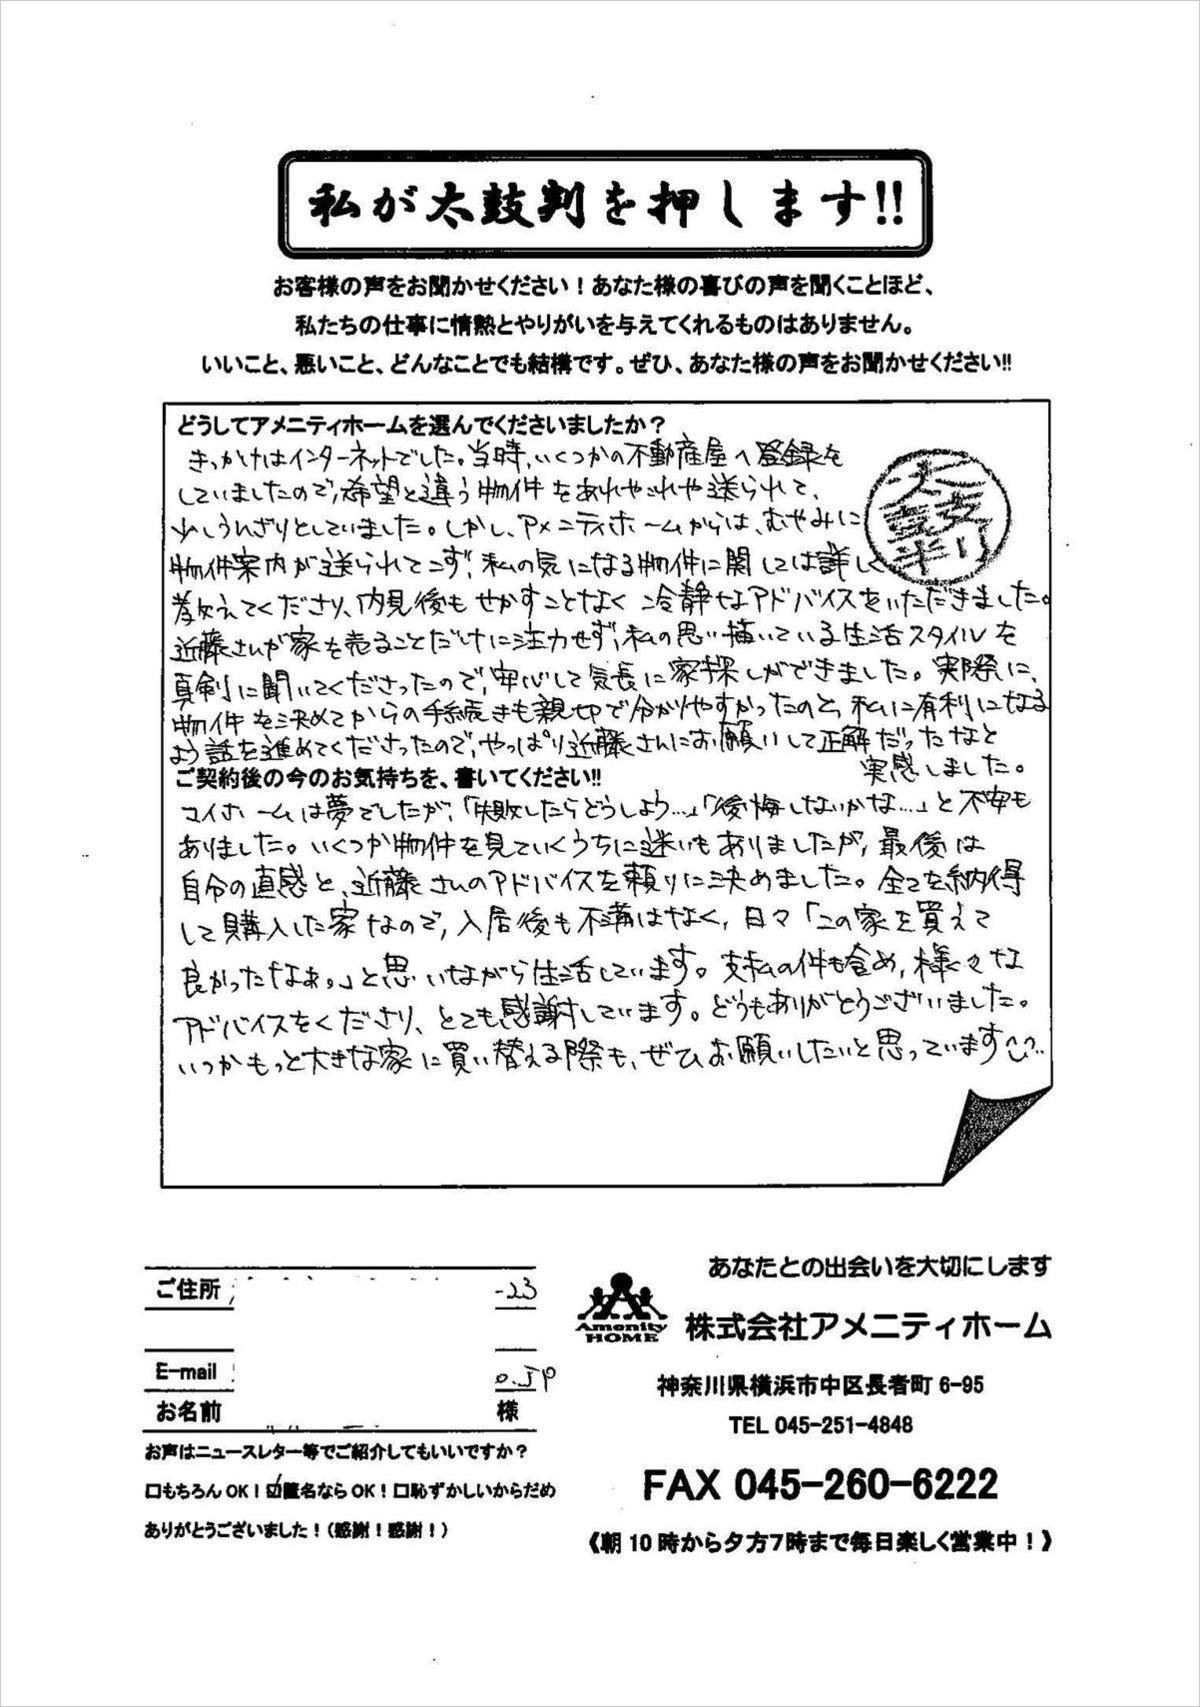 私が太鼓判を押します!!
お客様の声をお聞かせください！あなた様の喜びの声を聞くことほど、
私たちの仕事に情熱とやりがいを与えてくれるものはありません。
いいこと、悪いこと、どんなことでも結構です。ぜひ、あなた様の声をお聞かせください!!
どうしてアメニティホームを選んでくださいましたか？
きっかけはインターネットでした。当時、いくつかの不動産屋へ登録を
していましたので、希望と違う物件をあれやこれや送られて、
少しうんざりとしていました。しかし、アメニティホームからは、むやみに
物件案内が送られてこず、私の気になる物件に関しては詳しく
教えてくださり、内見後もせかすことなく冷静なアドバイスをいただきました。
近藤さんが家を売ることだけに注力せず、私の思い描いている生活スタイルを
真剣に聞いてくださったので、安心して気長に家探しができました。実際に、
物件を決めてからの手続きも親切で分かりやすかったのと、私に有利になる
よう話を進めてくださったので、やっぱり近藤さんにお願いして正解だったなと
実感しました。
太鼓判
ご契約後の今のお気持ちを、書いてください!!
マイホームは夢でしたが、「失敗したらどうしよう…」「後悔しないかな…」と不安も
ありました。いくつか物件を見ていくうちに迷いもありましたが、最後は
自分の直感と、近藤さんのアドバイスを頼りに決めました。全てを納得
して購入した家なので、入居後も不満はなく、日々「この家を買えて
良かったなぁ。」と思いながら生活しています。支払の件も含め、様々な
アドバイスをくださり、とても感謝しています。どうもありがとうございました。
いつかもっと大きな家に買い替える際も、ぜひお願いしたいと思っています
ご住所 -23
E-mail o.JP
お名前 様
お声はニュースレター等でご紹介してもいいですか？
□もちろんOK！☑匿名ならOK！□恥ずかしいからだめ
ありがとうございました！（感謝！感謝！）
あなたとの出会いを大切にします
Amenity
HOME
株式会社アメニティホーム
神奈川県横浜市中区長者町 6-95
TEL 045-251-4848
FAX 045-260-6222
《朝10時から夕方7時まで毎日楽しく営業中！》